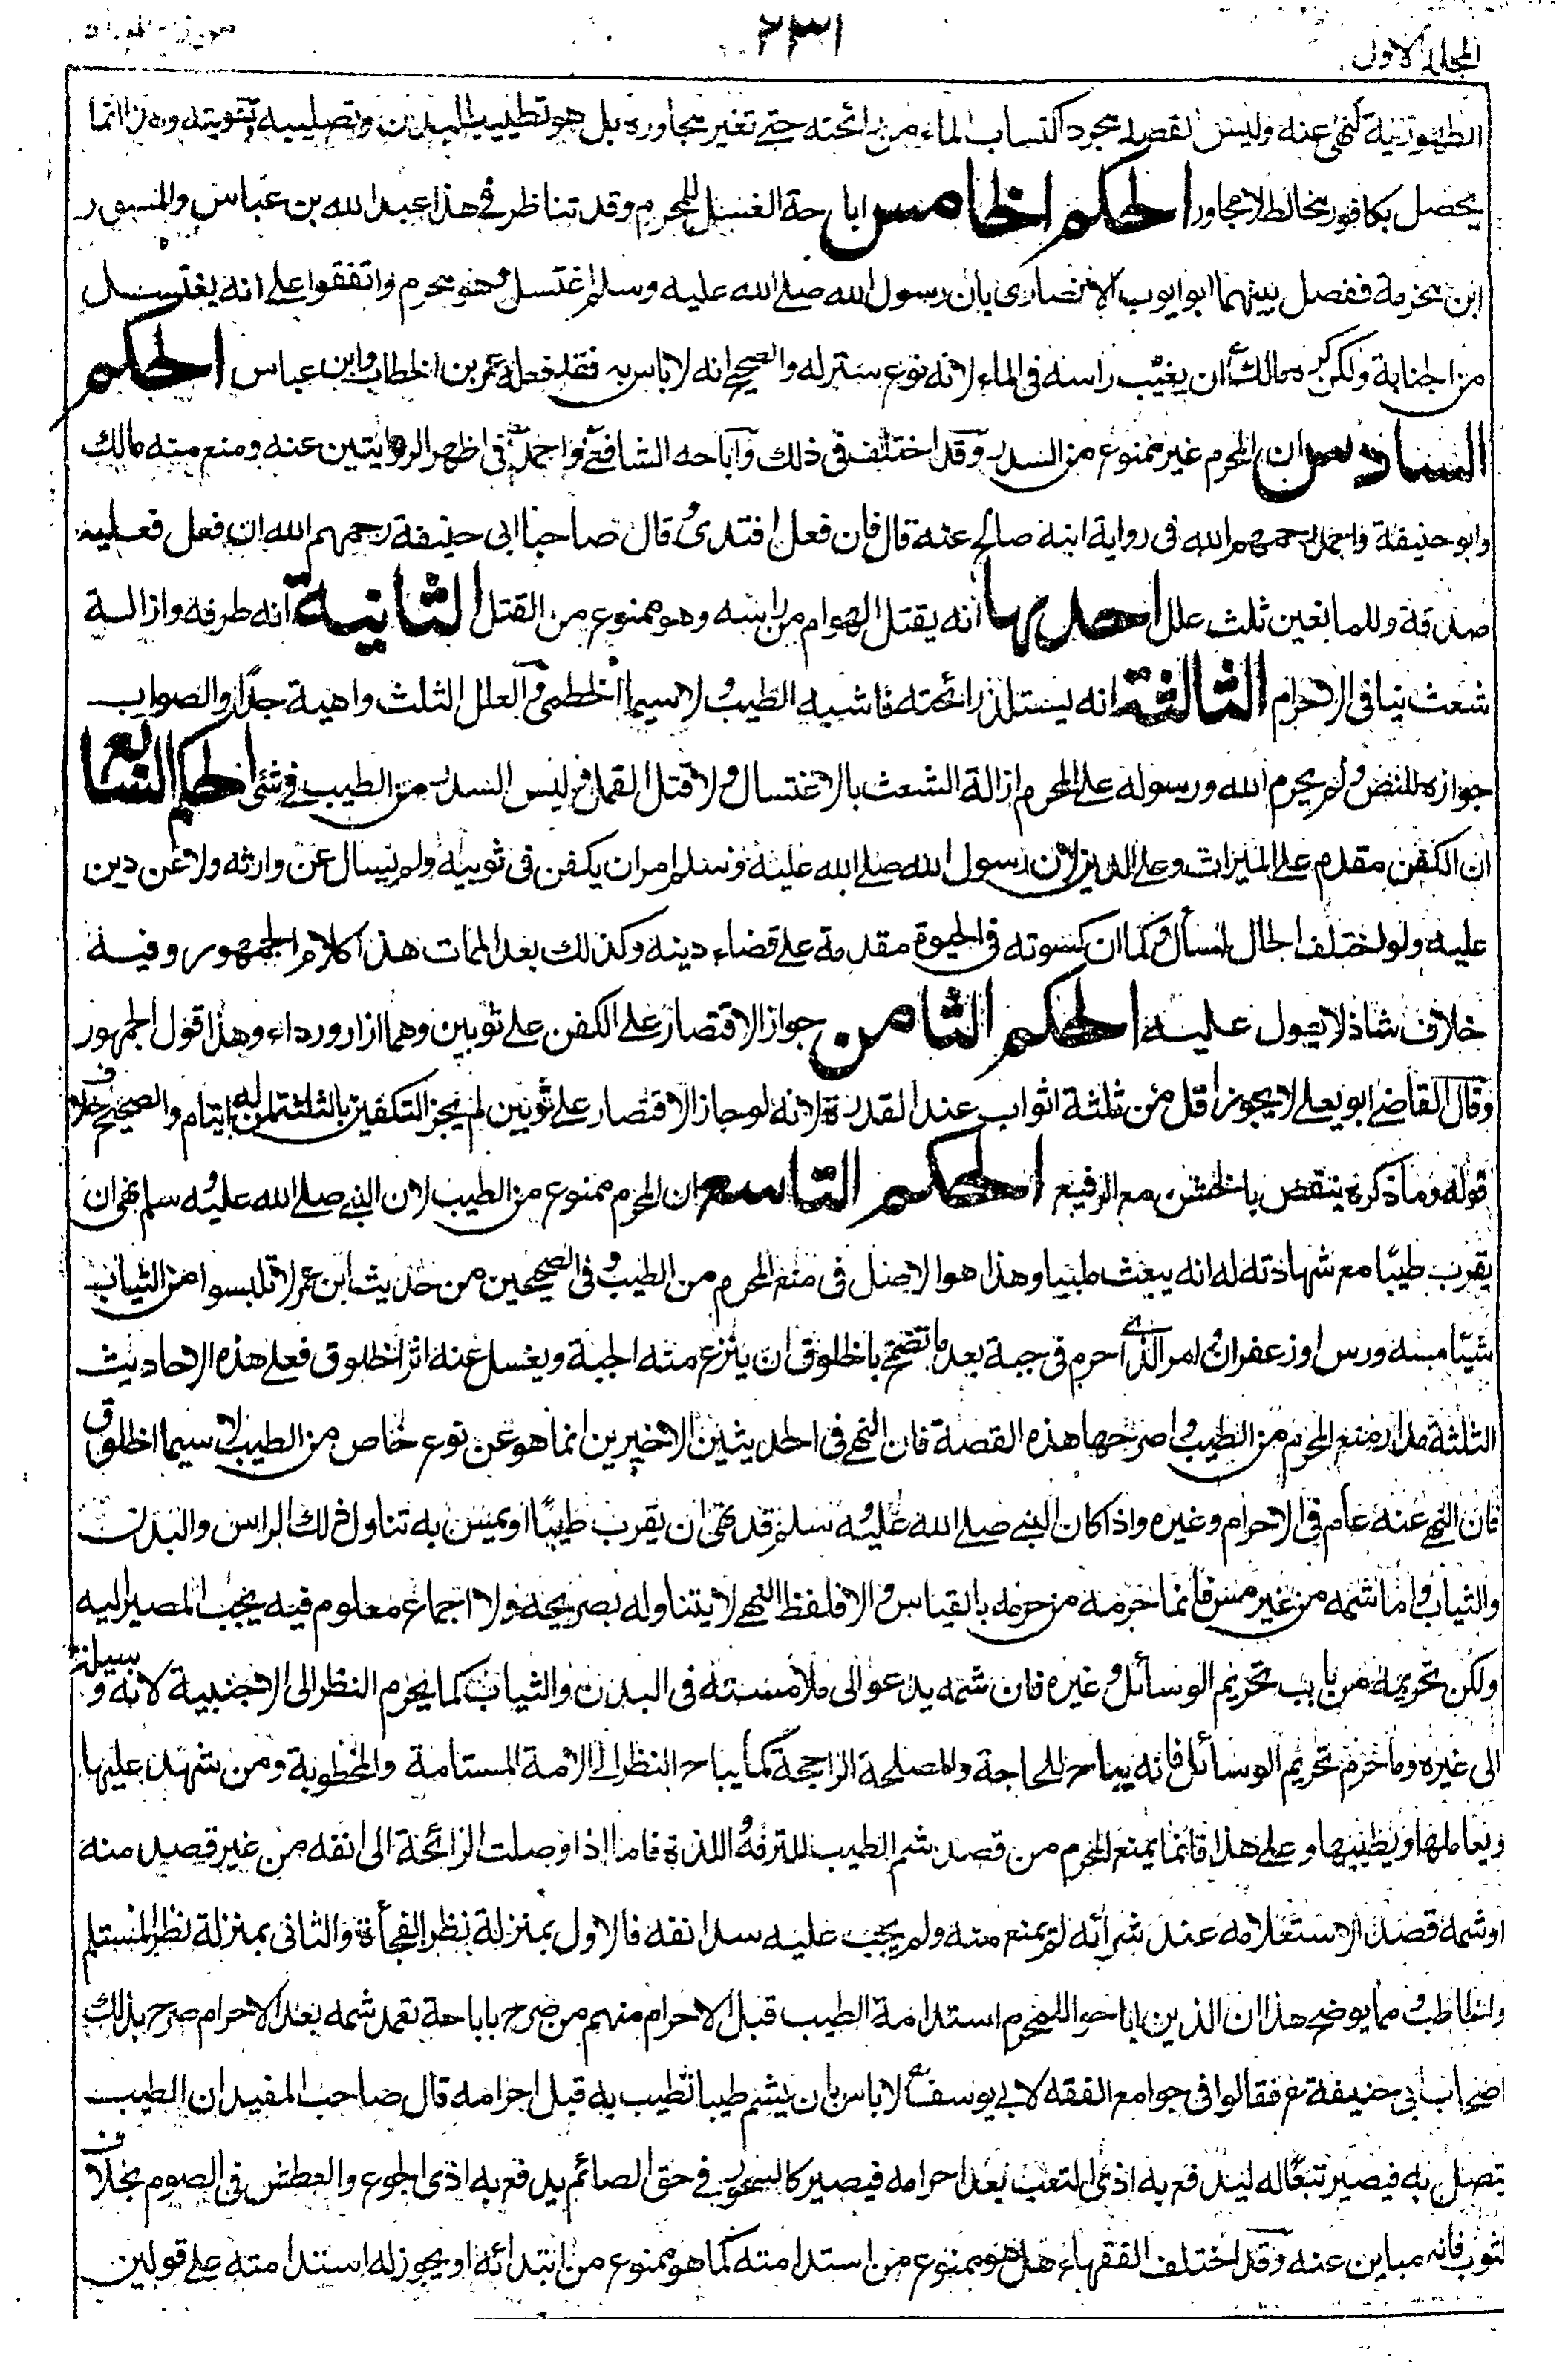 المجلد الاول
٢٣١
الطهورية لنهى عنه وليس القصد مجرد اكتساب الماء من رائحته حتى تغير مجاوره بل هو تطييب البدن وتصليبه وتقويته وهذا انما
يحصل بكافور مخالط لا مجاور الحكم الخامس اباحة الغسل للمحرم وقد تناظر فى هذا عبد الله بن عباس والمسور
ابن مخرمة ففصل بينهما ابو ايوب الانصارى بان رسول الله صلے الله عليه وسلم اغتسل وهو محرم واتفقوا على انه يغتسل
من الجنابة ولكن كره مالكؒ ان يغيّب راسه فى الماء لانه نوع ستر له والصحيح انه لا باس به فقد فعله عمر بن الخطاب وابن عباس الحكم
السادس ان المحرم غير ممنوع من السدر وقد اختلف فى ذلك واباحه الشافعےؒ واحمدؒ فى اظهر الروايتين عنه ومنع منه مالك
وابو حنيفة واحمد رحمهم الله فى رواية ابنه صالح عنه قال فان فعل افتدى وقال صاحبا ابى حنيفة رحمهم الله ان فعل فعليه
صدقة وللمانعين ثلث علل احدها انه يقتل الهوام من راسه وهو ممنوع من القتل الثانية انه طرفه وازالة
شعث ينافى الاحرام الثالثة انه يستلذ رائحته فاشبه الطيب ولا سيما الخطمى والعلل الثلث واهية جدًا والصواب
جوازه للنص ولم يحرم الله ورسوله على المحرم ازالة الشعث بالاغتسال ولا قتل القمل وليس السدر من الطيب فے شئ الحكم السابع
ان الكفن مقدم على الميراث وعلى الدين لان رسول الله صلے الله عليه وسلم امر ان يكفن فى ثوبيه ولم يسال عن وارثه ولا عن دين
عليه ولو اختلف الحال لسأل وكما ان كسوته فى الحيوة مقدمة على قضاء دينه وكذلك بعد الممات هذا كلام الجمهور وفيه
خلاف شاذ لا يعول عليه الحكم الثامن جواز الاقتصار على الكفن على ثوبين وهما ازار ورداء وهذا قول الجمهور
وقال القاضے ابو يعلے لا يجوز اقل من ثلثة اثواب عند القدرة لانه لو جاز الاقتصار على ثوبين لم يجز التكفين بالثلثة لمن له ايتام والصحيح خلاف
قوله وما ذكره ينتقض بالخشن مع الرفيع الحكم التاسع ان المحرم ممنوع من الطيب لان النبے صلے الله عليه وسلم نهى ان
يقرب طيبًا مع شهادته له انه يبعث ملبيا وهذا هو الاصل فى منع المحرم من الطيب وفى الصحيحين من حديث ابن عمر لا تلبسوا من الثياب
شيئا مسه ورس او زعفران وامر الذے احرم فى جبة بعد ما تضمخ بالخلوق ان ينزع منه الجبة ويغسل عنه اثر الخلوق فعلے هذه الاحاديث
الثلثة مدار منع المحرم من الطيب واصرحها هذه القصة فان النهے فى الحديثين الاخيرين انما هو عن نوع خاص من الطيب لا سيما الخلوق
فان النهے عنه عام فى الاحرام وغيره واذا كان النبے صلے الله عليه وسلم قد نهى ان يقرب طيبًا او يمس به تناول ذلك الراس والبدن
والثياب واما شمه من غير مس فانما حرمه من حرمه بالقياس والا فلفظ النهے لا يتناوله بصريحه ولا اجماع معلوم فيه يجب المصير اليه
ولكن تحريمه من باب تحريم الوسائل وغيره فان شمه يدعو الى ملامسته فى البدن والثياب كما يحرم النظر الى الاجنبية لانه وسيلة
الى غيره وما حرم تحريم الوسائل فانه يباح للحاجة والمصلحة الراجحة كما يباح النظر الى الامة المستامة والمخطوبة ومن شهد عليها
ويعاملها او يطبيها وعلى هذا فانما يمنع المحرم من قصد شم الطيب للترفه واللذة فاما اذا وصلت الرائحة الى انفه من غير قصد منه
او شمه قصد الاستعلامه عند شرائه لم يمنع منه ولم يجب عليه سد انفه فالاول بمنزلة نظر الفجأة والثانى بمنزلة نظر المستام
والخاطب ومما يوضح هذا ان الذين اباحوا للمحرم استدامة الطيب قبل الاحرام منهم من صرح باباحة تعمد شمه بعد الاحرام صرح بذلك
اصحاب ابى حنيفةؒ فقالوا فى جوامع الفقه لابے يوسفؒ لا باس بان يشم طيبا تطيب به قبل احرامه قال صاحب المفيد ان الطيب
يتصل به فيصير تبعًا له ليدفع به اذى التعب بعد احرامه فيصير كالسحور فے حق الصائم يدفع به اذى الجوع والعطش فى الصوم بخلاف
الثوب فانه مباين عنه وقد اختلف الفقهاء هل هو ممنوع من استدامته كما هو ممنوع من ابتدائه او يجوز له استدامته على قولين